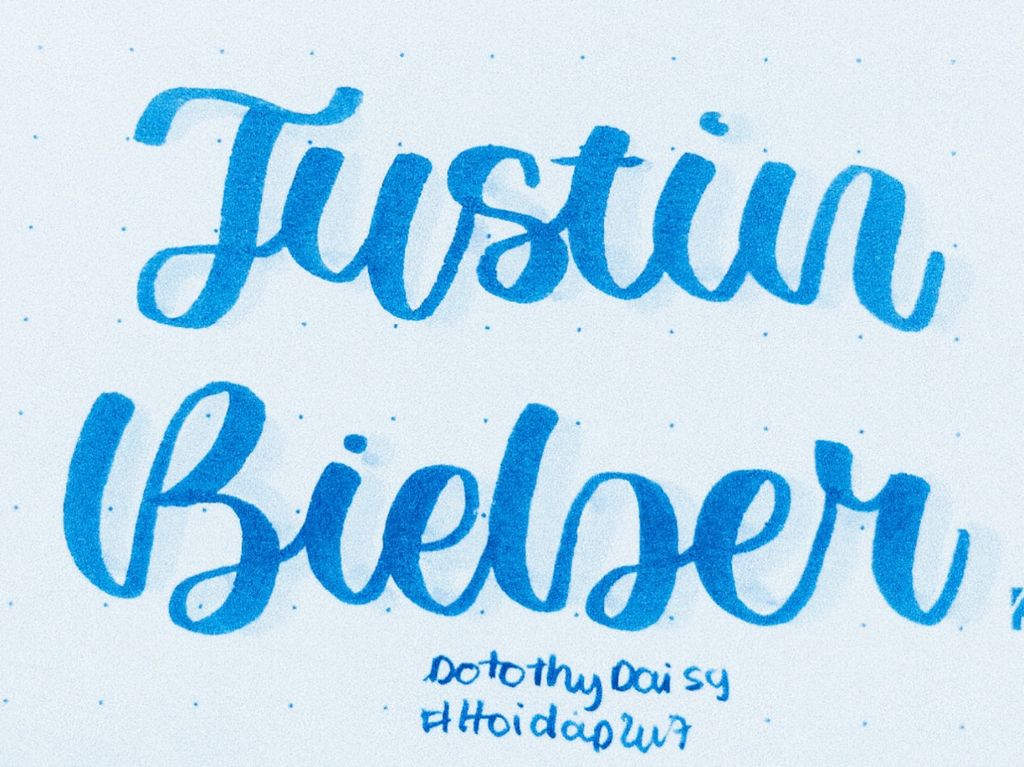 Justin
Bieber
Dotothy Daisy
#Hoidap247